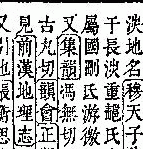 地名穆天子
于長重氏
屬國剛氏游
又集韻馮無切
古丸切韻會正
見前漢地理志
又引也張衡思